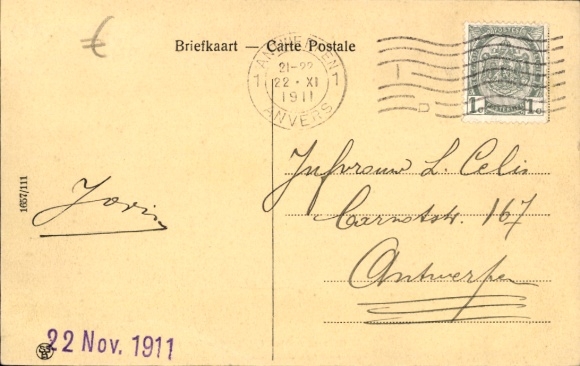 €
Briefkaart — Carte Postale
ANTWERPEN
1 1
21-22
22 · XI
1911
ANVERS
1c 1c
Jufvrouw L. Celis
Carnotstr. 167
Antwerpen
1657/111
22 Nov. 1911